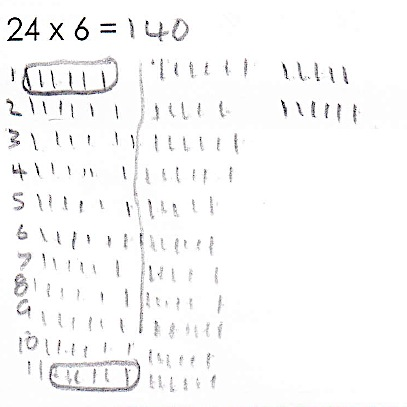 24 x 6 = 140
1
2
3
4
5
6
7
8
9
10
11